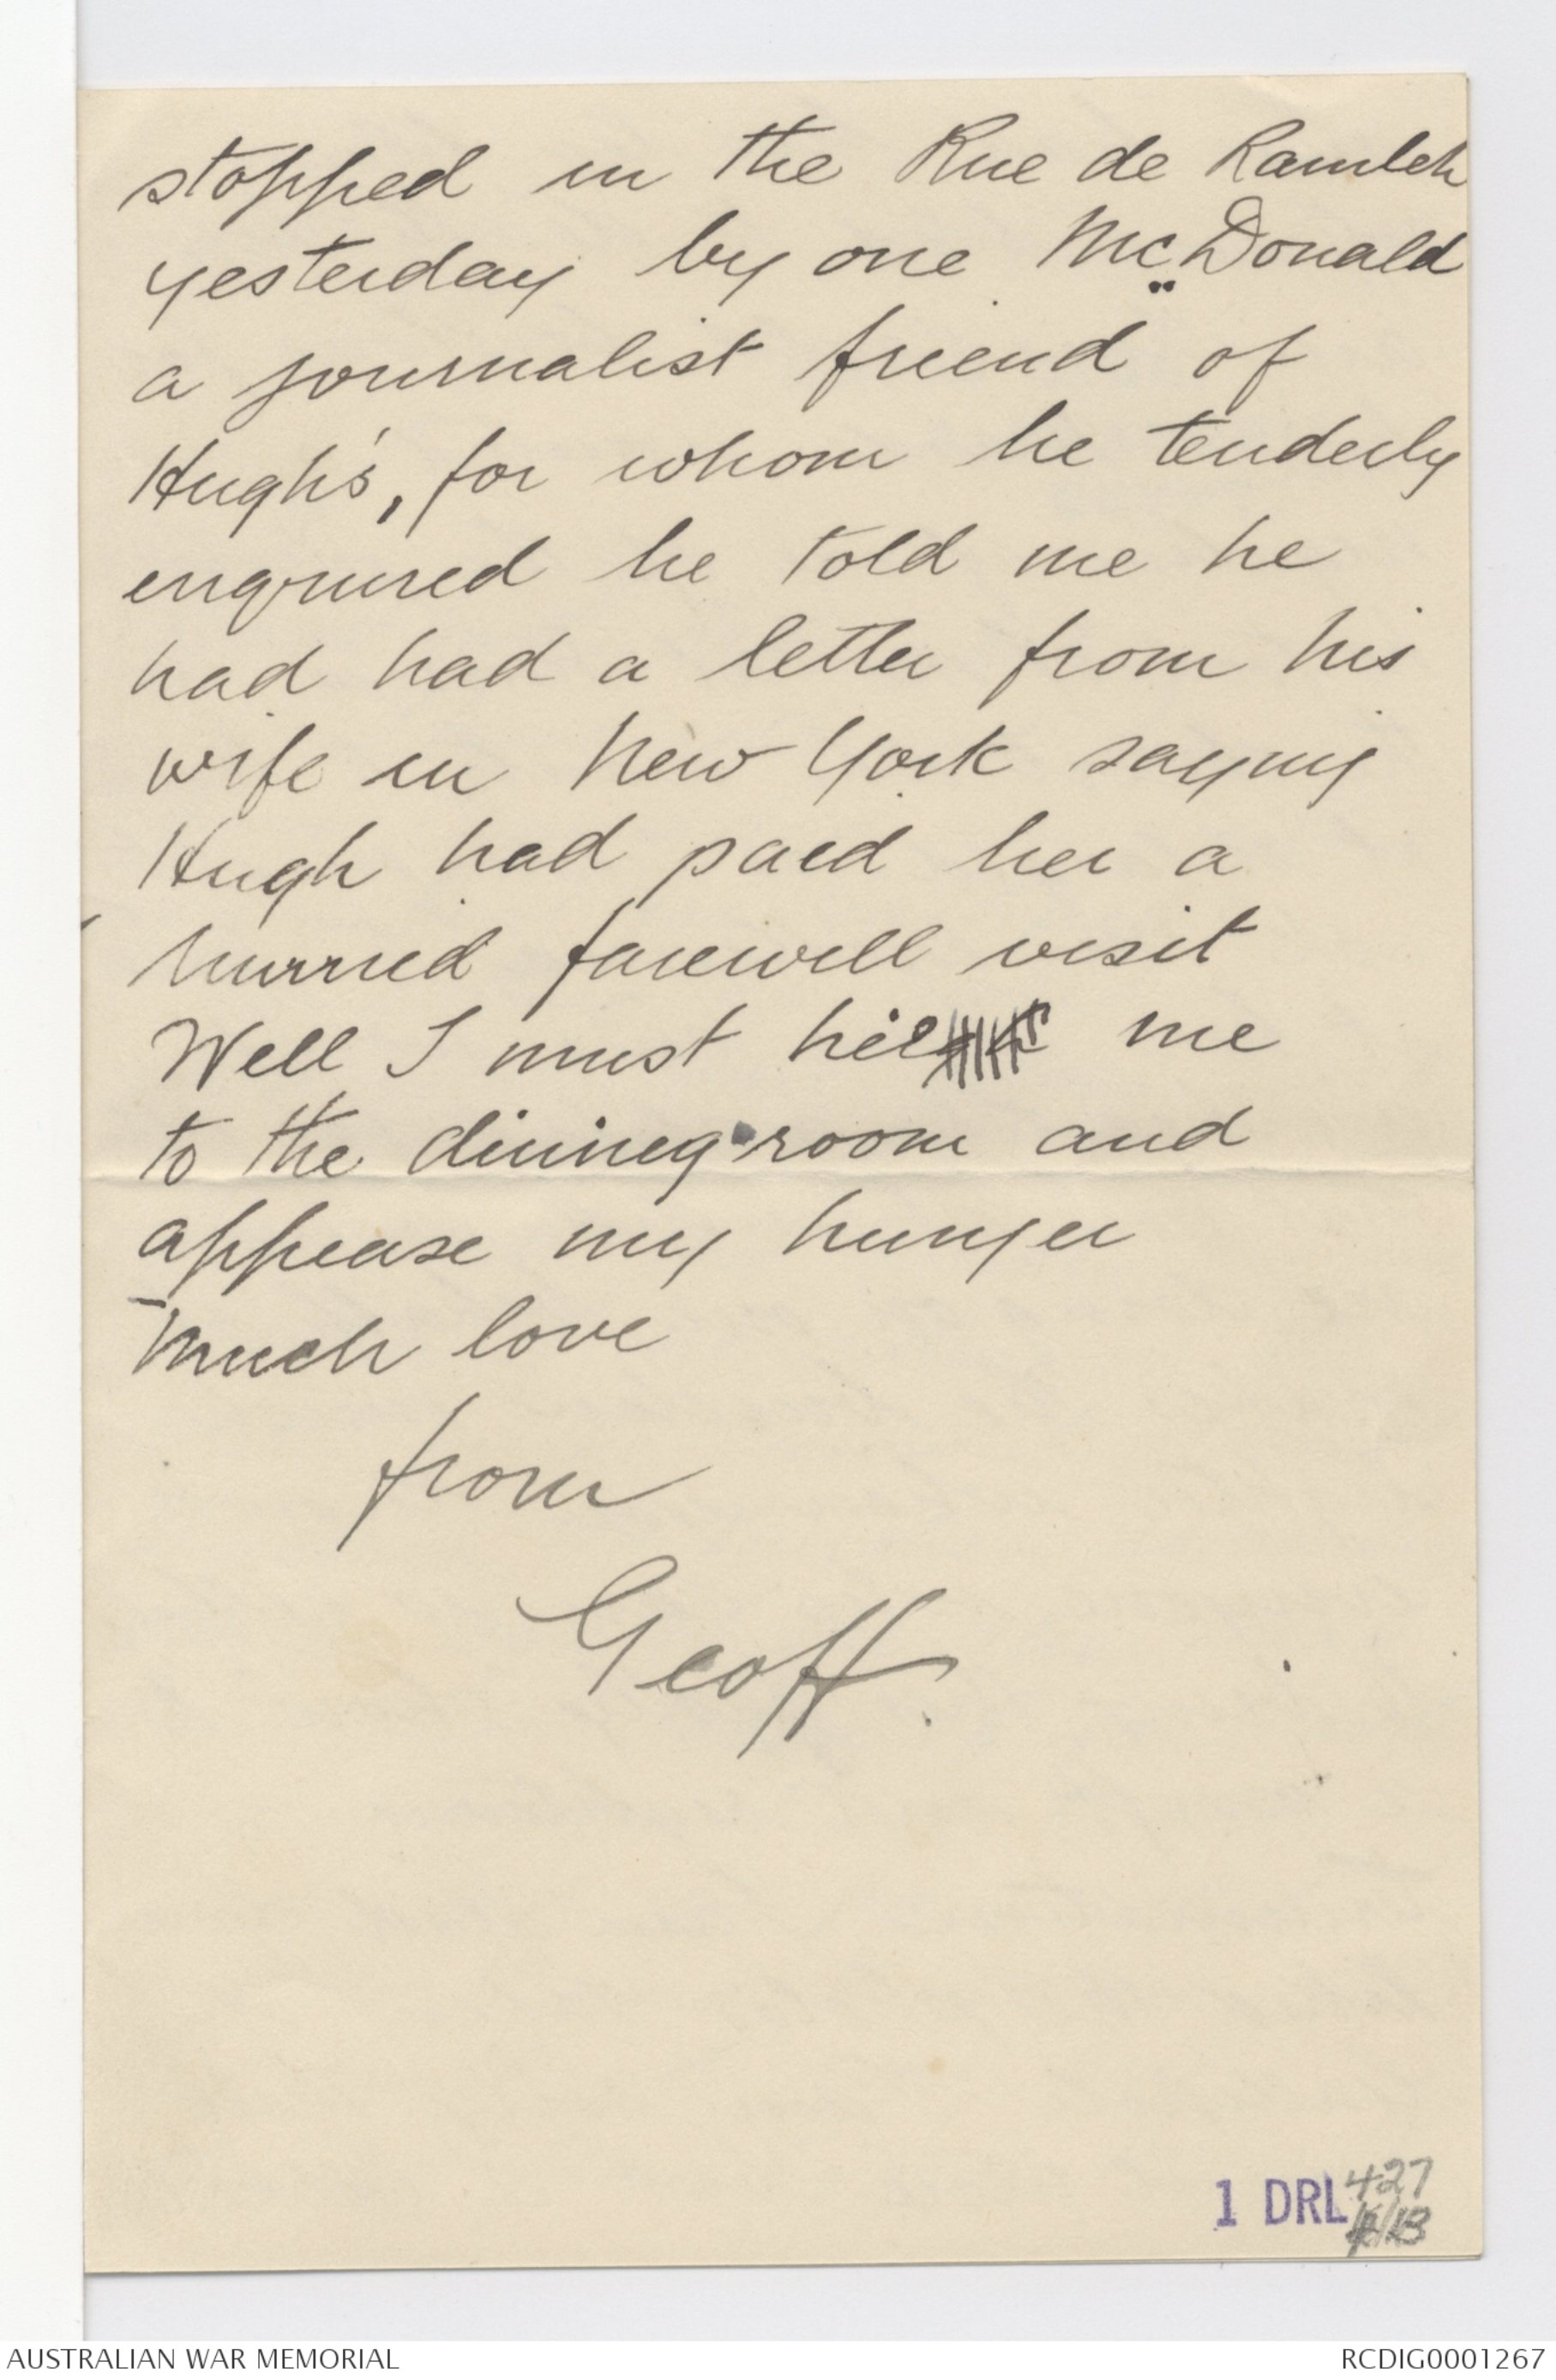 stopped in the Rue de Ramleh
yesterday by one McDonald
a journalist friend of
Hugh's, for whom he tenderly
enquired he told me he
had had a letter from his
wife in New York saying
Hugh had paid her a
hurried farewell visit
Well I must hie me
to the dining-room and
appease my hunger
Much love
from
Geoff.
1 DRL 427
AUSTRALIAN WAR MEMORIAL
RCDIG0001267